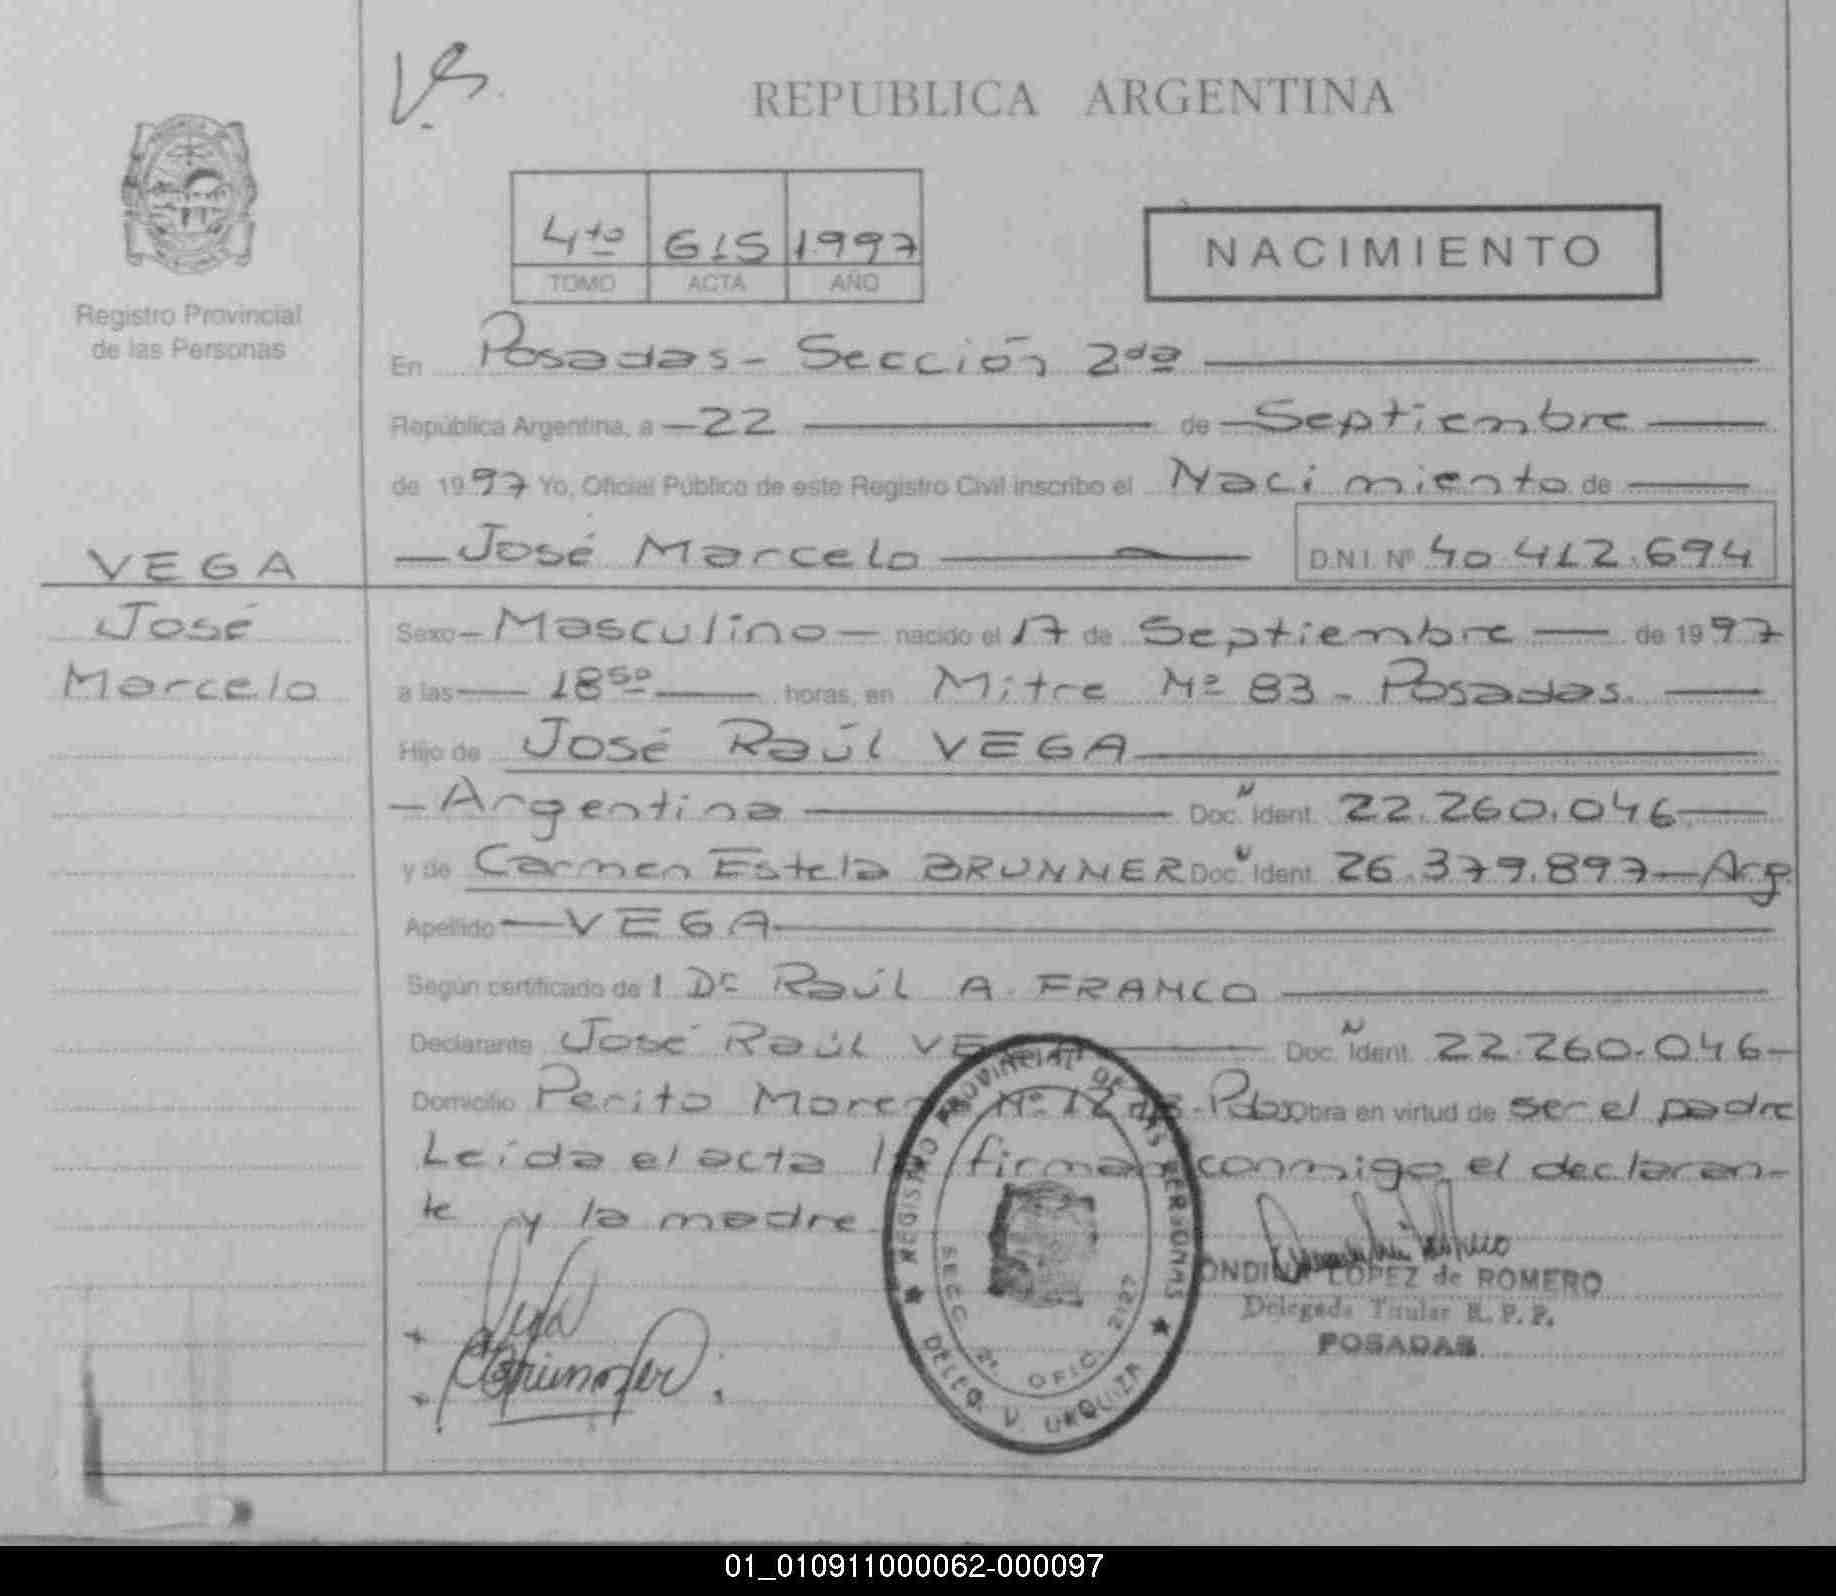 REPUBLICA ARGENTINA
4to 615 1997
TOMO ACTA AÑO
NACIMIENTO
Registro Provincial
de las Personas
En Posadas - Sección 2da
República Argentina, a - 22 de Septiembre
de 1997 Yo, Oficial Público de este Registro Civil inscribo el Nacimiento de
VEGA
José
Marcelo
José Marcelo D.N.I. Nº 40.412.694
Sexo - Masculino - nacido el 17 de Septiembre de 1997
a las 18 50 horas, en Mitre Nº 83 - Posadas.
Hijo de José Raúl VEGA
- Argentina Doc. Ident. 22.260.046
y de Carmen Estela BRUNNER Doc. Ident. 26.379.897 - Arg.
Apellido - VEGA
Según certificado de l Dr Raúl A. FRANCO
Declarante José Raúl VEGA Doc. Ident. 22.260.046 -
Domicilio Perito Moreno Nº - Pdas Obra en virtud de ser el padre
Leída el acta la firman conmigo, el declaran-
te y la madre
Vega
Brunner
REGISTRO PROVINCIAL DE LAS PERSONAS
SECC. 2ª. OFIC. 2127
DELEG. V. URQUIZA
LOPEZ de ROMERO
Delegada Titular R. P. P.
POSADAS
01_010911000062-000097